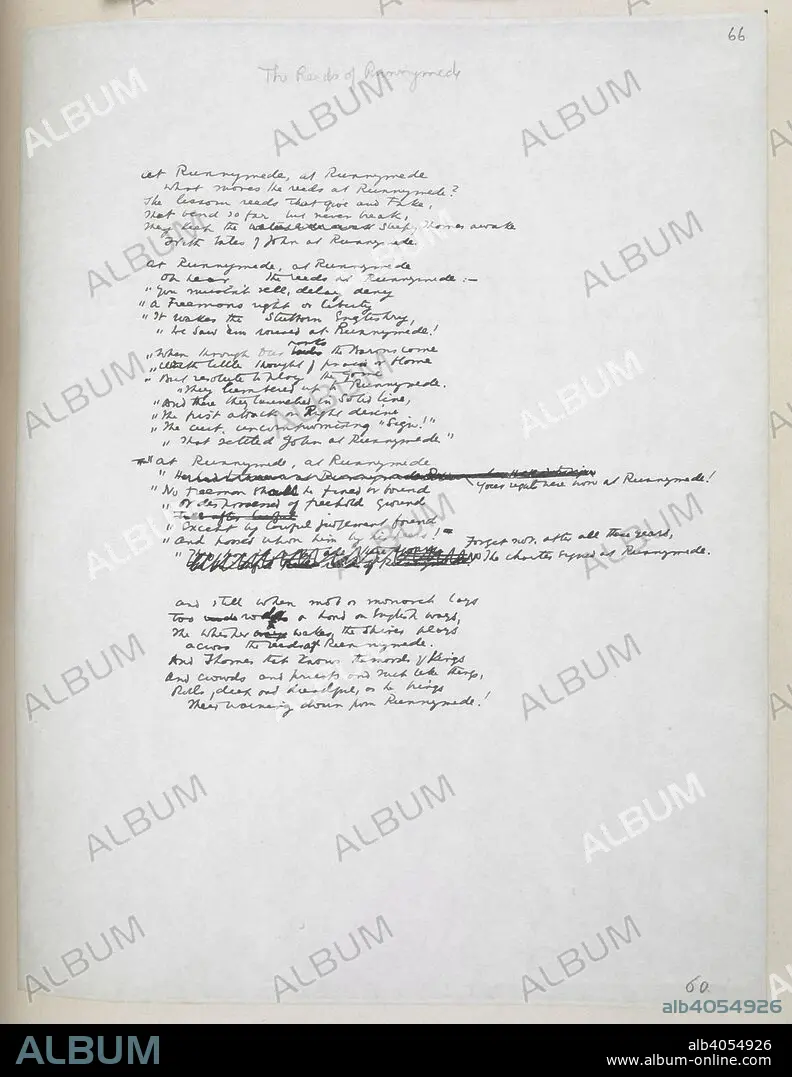 66
The Reeds of Runnymede
at Runnymede, at Runnymede
What moves the reeds at Runnymede?
The lissom reeds that give and take,
That bend so far but never break,
They keep the sleepy Thames awake
With tales of John at Runnymede.
At Runnymede, at Runnymede
Oh hear the reeds at Runnymede:—
"You mustn't sell, delay, deny
"A Freeman's right or liberty
"It wakes the stubborn Englishry,
"We saw 'em roused at Runnymede!
"When through our ranks the Barons come
"With little thought of praise or blame
"But resolute to play the game
"They lumbered up to Runnymede.
"And there they launched in solid line,
"The first attack on Right divine
"The curt, uncompromising "Sign!"
"That settled John at Runnymede"
"at Runnymede, at Runnymede
"Your rights were won at Runnymede!
"No freeman shall be fined or bound
"Or dispossessed of freehold ground
"Except by lawful judgement found
"And passed upon him by his peers!
Forget not, after all these years,
The charter signed at Runnymede.
and still when mob or monarch lays
Too rude a hand on English ways,
The whisper wakes, the shudder plays
across the reeds at Runnymede.
And Thames that knows the moods of Kings
and crowds and priests and such like things,
Rolls, deep and dreadful, as he brings
Their warning down from Runnymede!
60
ALBUM
alb4054926
ALBUM
alb4054926
www.album-online.com